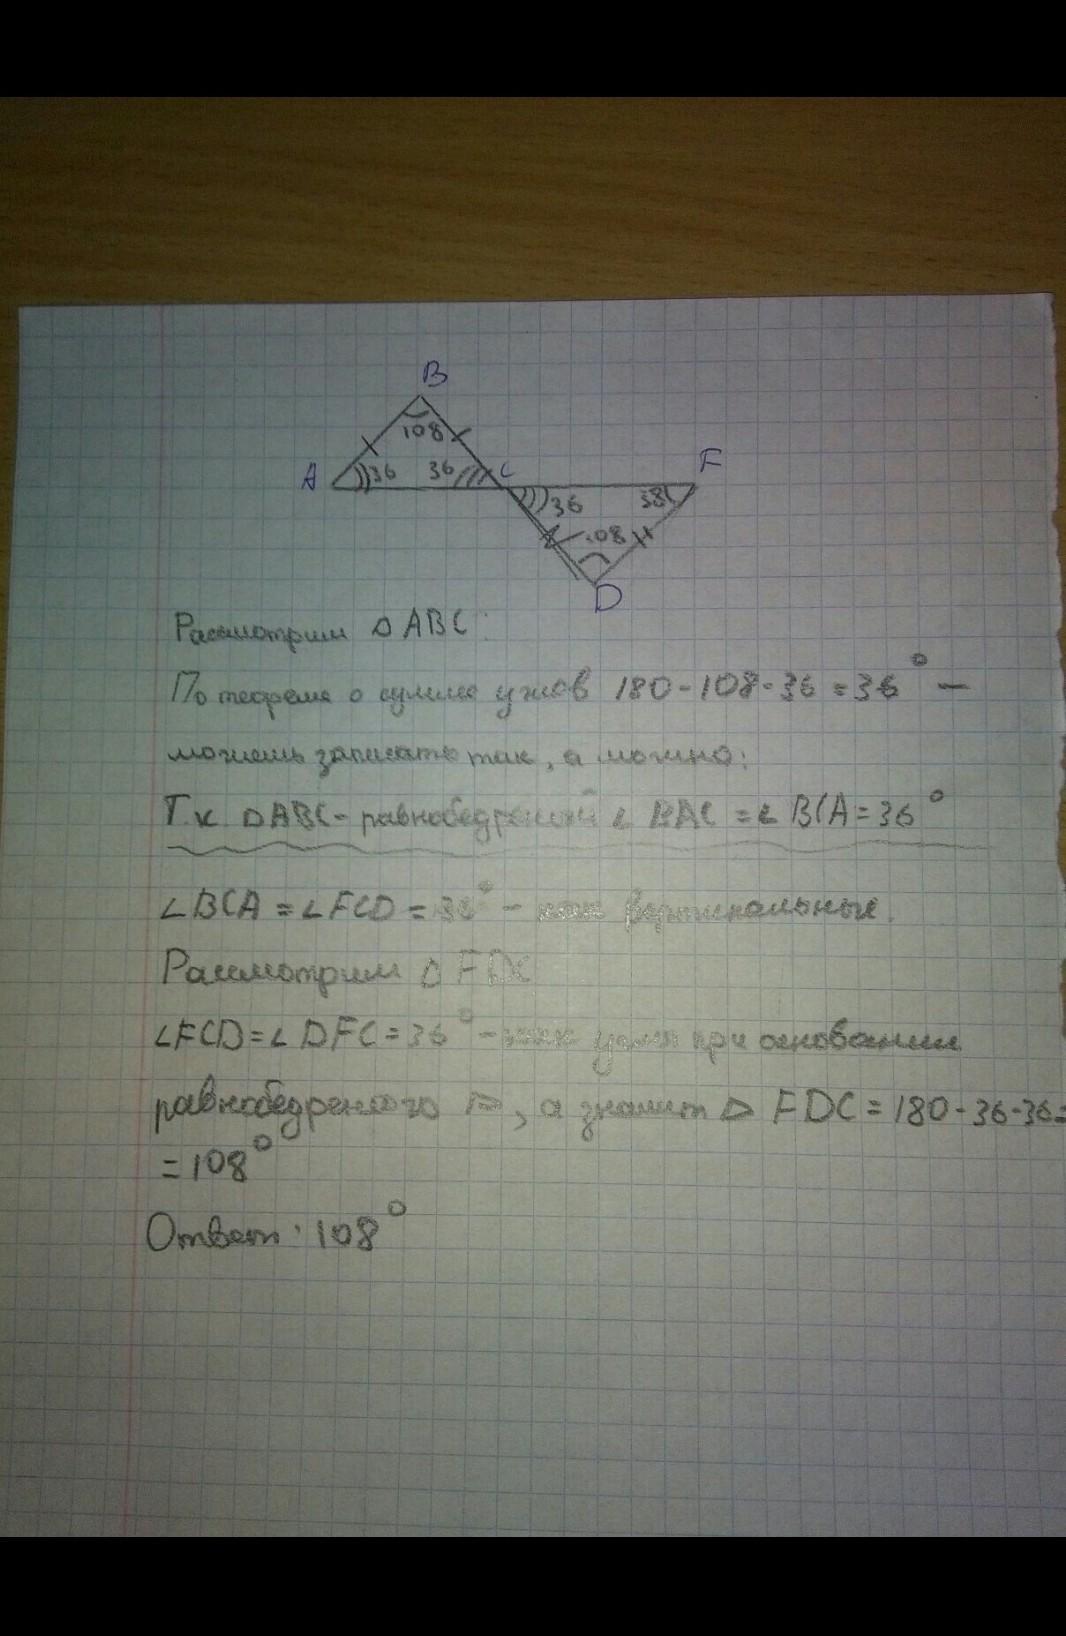 B
108
A 36 36 C F
36 38
108
D
Рассмотрим △ABC:
По теореме о сумме углов 180-108-36=36° -
можешь записать так, а можно:
Т.к. △ABC - равнобедреный ∠BAC = ∠BCA=36°
∠BCA = ∠FCD = 36° - как вертикальные.
Рассмотрим △FDC
∠FCD=∠DFC=36° - как углы при основании
равнобедреного △, а значит △ FDC = 180-36-36=
= 108°
Ответ: 108°